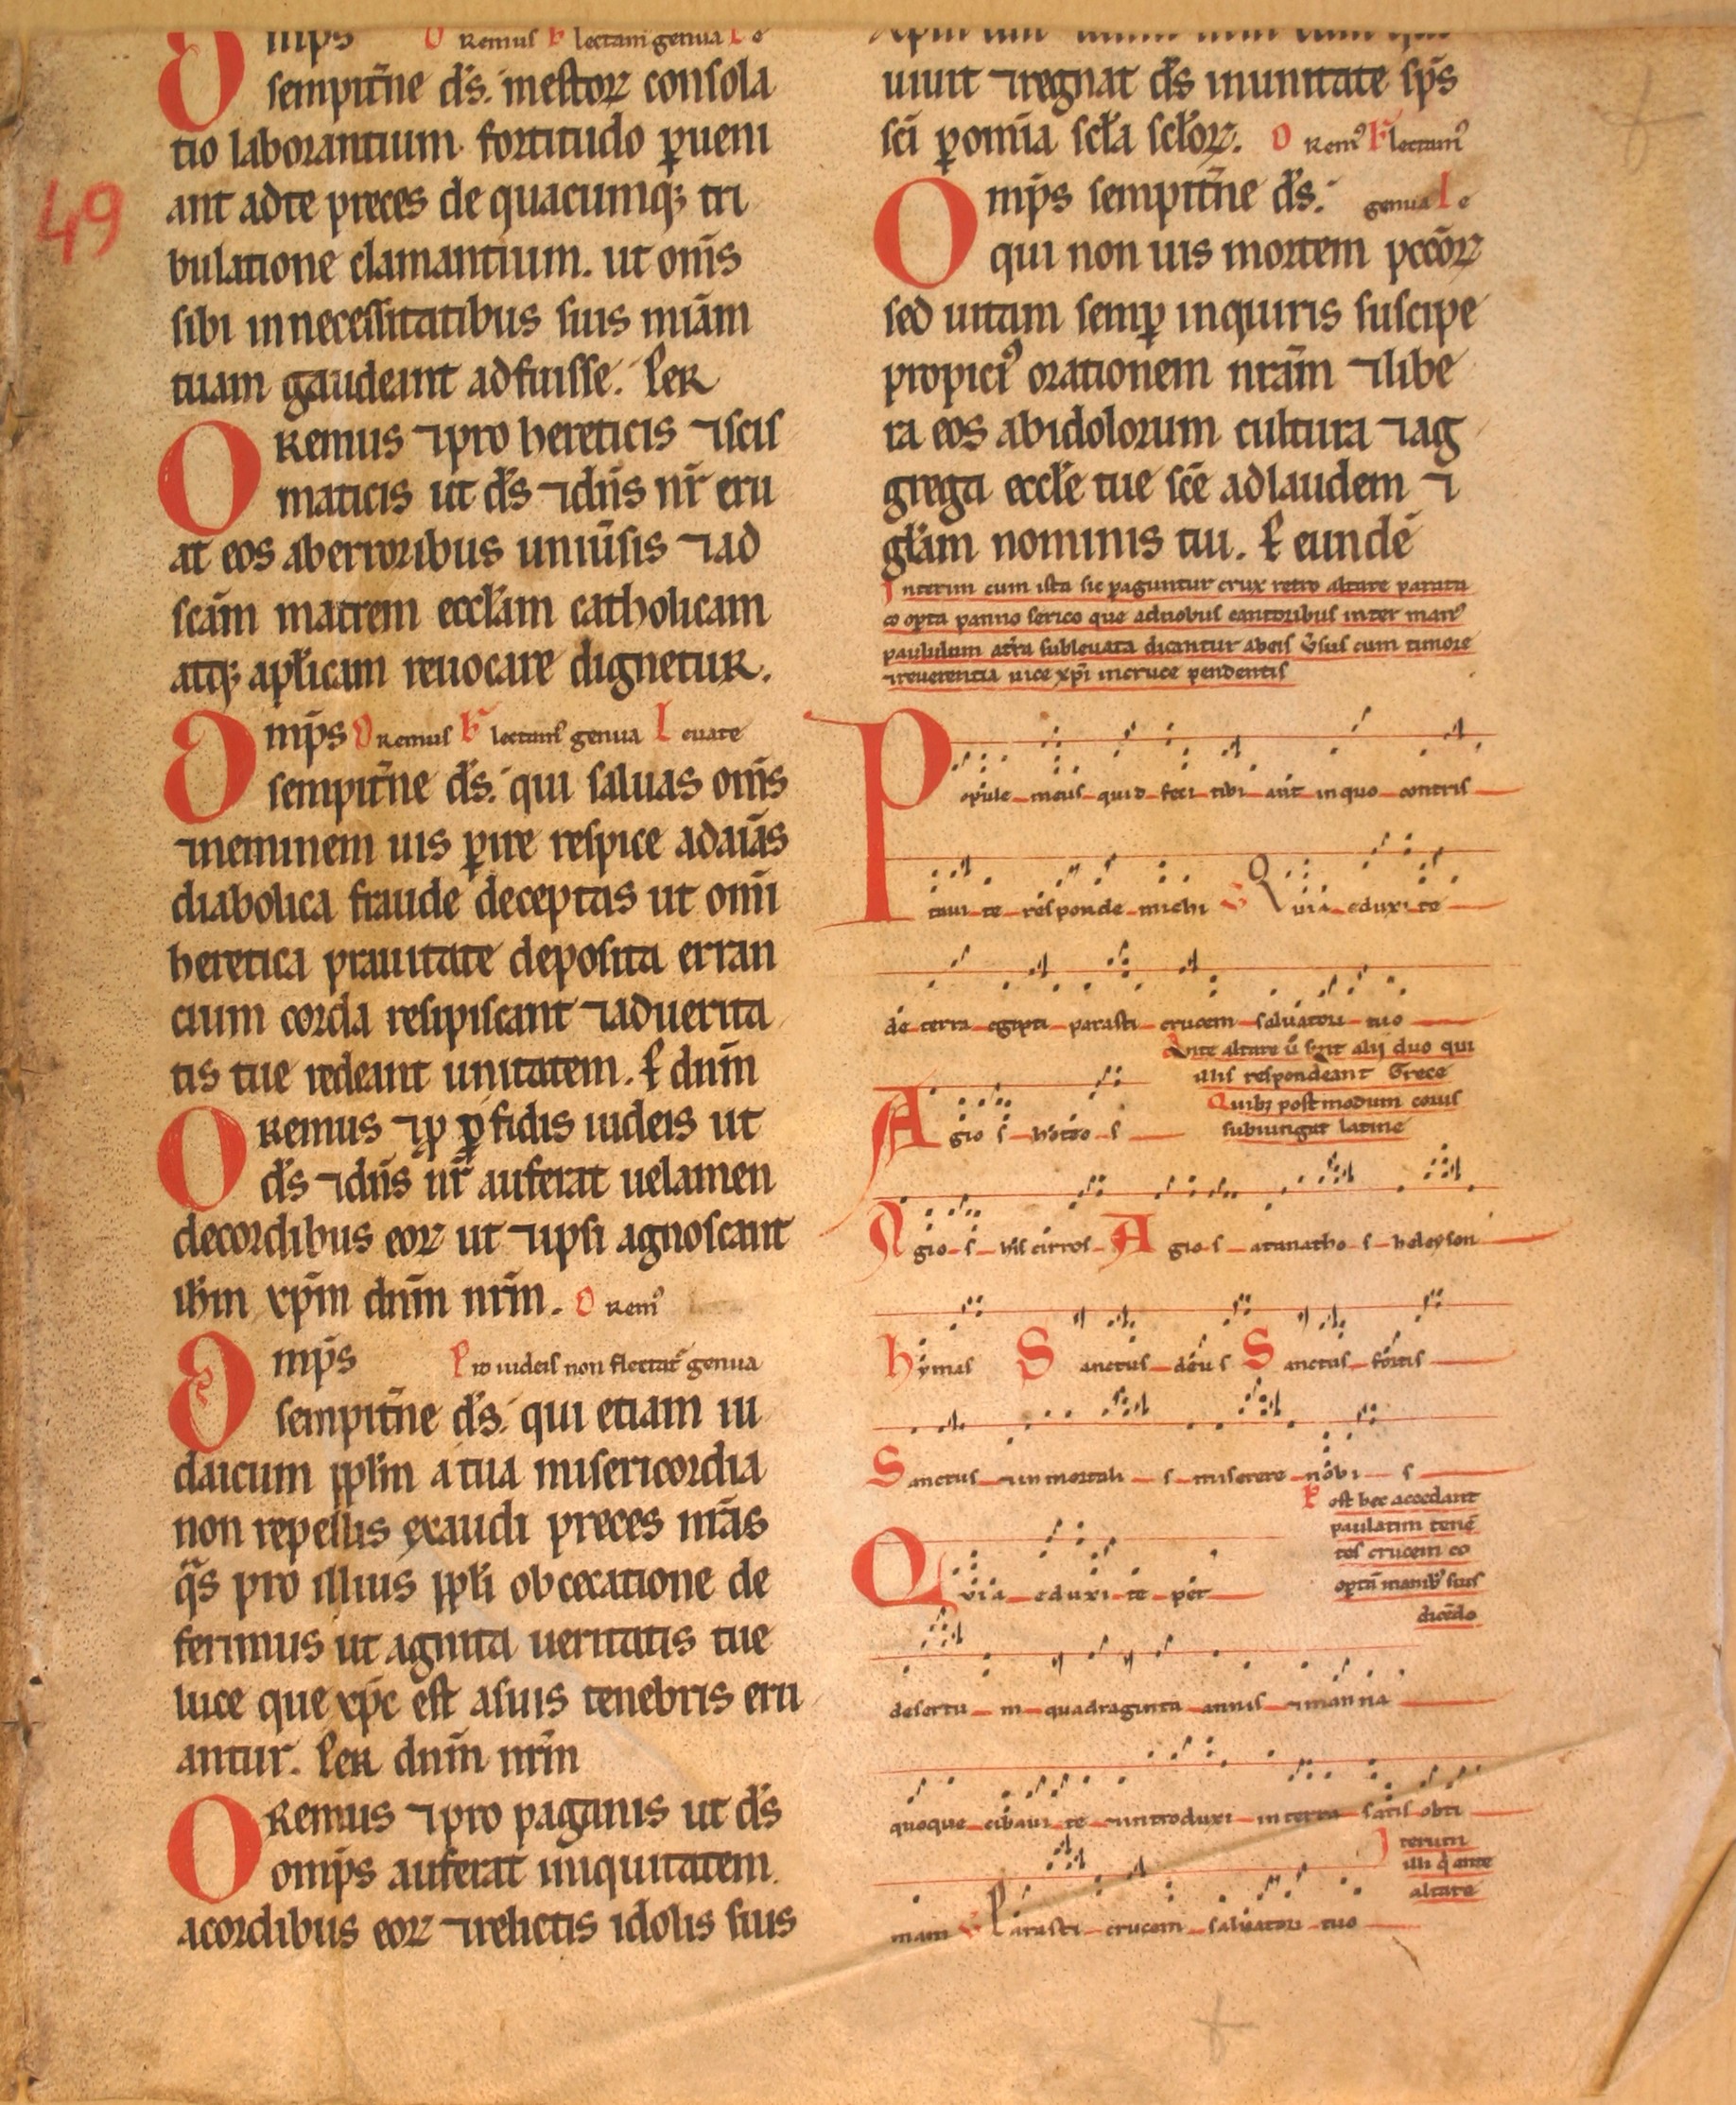 Omp̄s Oremus Flectam genua Le
sempit̄ne ds̄. mestoꝝ consola
tio laborantium fortitudo ꝑueni
ant adte preces de quacumqꝫ tri
bulatione clamantium. ut om̄s
sibi innecessitatibus suis miām
tuam gaudeant adfuisse. Per
49
Oremus ⁊pro hereticis ⁊scis
maticis ut ds̄ ⁊dn̄s nr̄ eru
at eos aberroribus uniūsis ⁊ad
scām matrem eccl̄am catholicam
atqꝫ apl̄icam reuocare dignetur.
Omp̄s Oremus Flectamꝰ genua Leuate
sempit̄ne ds̄. qui saluas om̄s
⁊neminem uis ꝑire respice adaīas
diabolica fraude deceptas ut omī
heretica prauitate deposita erran
cium corda resipiscant ⁊aduerita
tis tue redeant unitatem. P dnm̄
Oremus ⁊ꝓ ꝑfidis iudeis ut
ds̄ ⁊dn̄s nr̄ auferat uelamen
decordibus eoꝝ ut ⁊ipsi agnoscant
ihm̄ xpm̄ dnm̄ nrm̄. Oremꝰ
Omp̄s Pro iudeis non flectat̄ genua
sempit̄ne ds̄. qui etiam iu
daicum ppl̄m atua misericordia
non repellis exaudi preces nrās
qs̄ pro illius ppl̄i obcecatione de
ferimus ut agnita ueritatis tue
luce que xpc̄ est asuis tenebris eru
antur. Per dnm̄ nrm̄
Oremus ⁊pro paganis ut ds̄
omp̄s auferat iniquitatem
acordibus eoꝝ ⁊relictis idolis suis
uiuit ⁊regnat ds̄ inunitate sp̄s
sci̅ ꝑomīa scl̄a scl̄oꝝ. Oremꝰ Flectamꝰ
Omp̄s sempit̄ne ds̄. genua Le
qui non uis mortem pccōꝝ
sed uitam semꝑ inquiris suscipe
propiciꝰ orationem nrām ⁊libe
ra eos abidolorum cultura ⁊ag
grega eccl̄e tue scē adlaudem ⁊
gl̄am nominis tui. P eundē
Interim cum ista sic ꝑaguntur crux retro altare parata
coopta panno serico que aduobus cantoribus inter manꝰ
paululum at̄ra subleuata dicantur abeis v̄sus cum timore
⁊reuerentia uice xpi̅ incruce pendentis
Popule meus quid feci tibi aut inquo contris
taui te responde michi V Quia eduxi te
de terra egipti parasti crucem saluatori tuo
Ante altare ū sint alij duo qui
illis respondeant Grece
Agios hotheos
Quibꝫ postmodum
subiungat latine
Agios his cirros Agios atanathos heleyson
hymas Sanctus deus Sanctus fortis
Sanctus ⁊inmortalis miserere nobis
Post hec accedant
paulatim tenē
tes crucem co
optā manibꝰ suis
dicēdo
Quia eduxi te per
desertum quadraginta annis ⁊manna
quoque cibaui te ⁊introduxi interra satis opti
Iterum
illi q̄ ante
altare
mam V Parasti crucem saluatori tuo